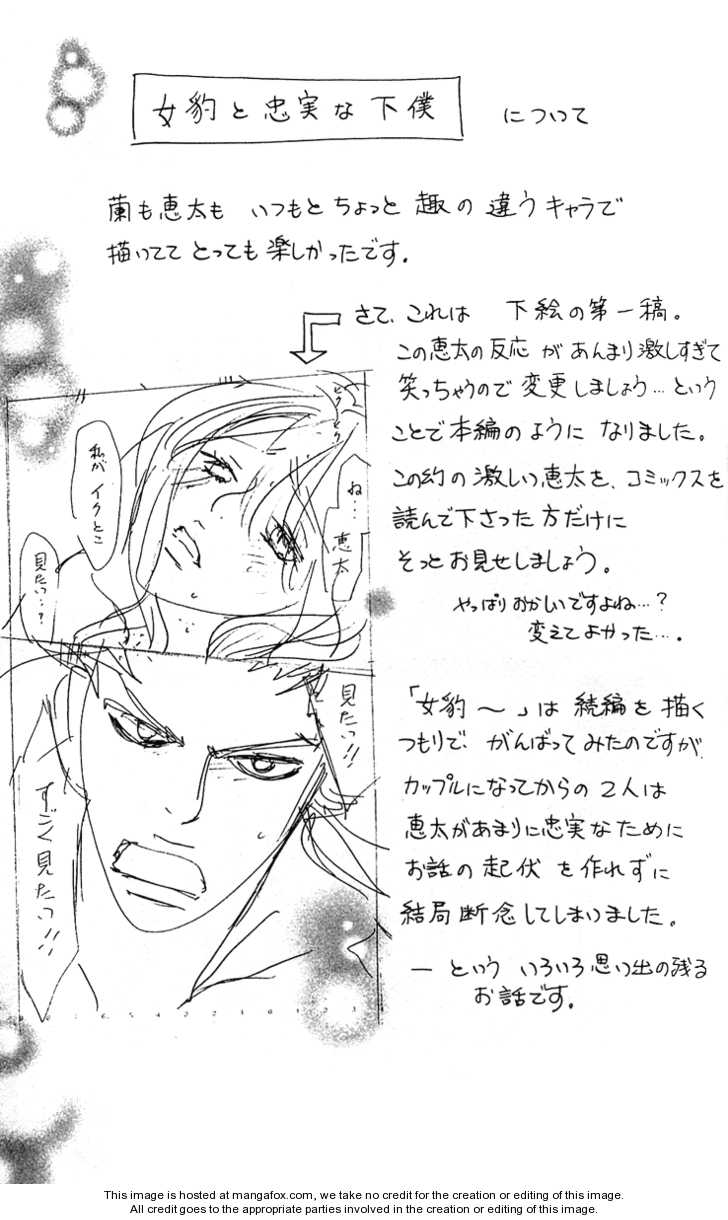 女豹と忠実な下僕 について
蘭も恵太も いつもとちょっと 趣の 違うキャラで
描いてて とっても楽しかったです。
さて、これは 下絵の第一稿。
この恵太の反応 が あんまり激しすぎて
笑っちゃうので 変更しましょう…という
ことで本編のように なりました。
この幻の激しい恵太を、コミックスを
読んで下さった方だけに
そっとお見せしましょう。
やっぱりおかしいですよね…?
変えてよかった…。
ドクドク
ね…
恵太
私が
イクとこ
見たい…?
見たい!!
すごく見たいっ!!
「女豹〜」は 続編を 描く
つもりで、がんばってみたのですが
カップルになってからの 2人は
恵太があまりに忠実なために
お話の 起伏 を 作れずに
結局断念してしまいました。
ー という いろいろ思い出の残る
お話です。
This image is hosted at mangafox.com, we take no credit for the creation or editing of this image.
All credit goes to the appropriate parties involved in the creation or editing of this image.